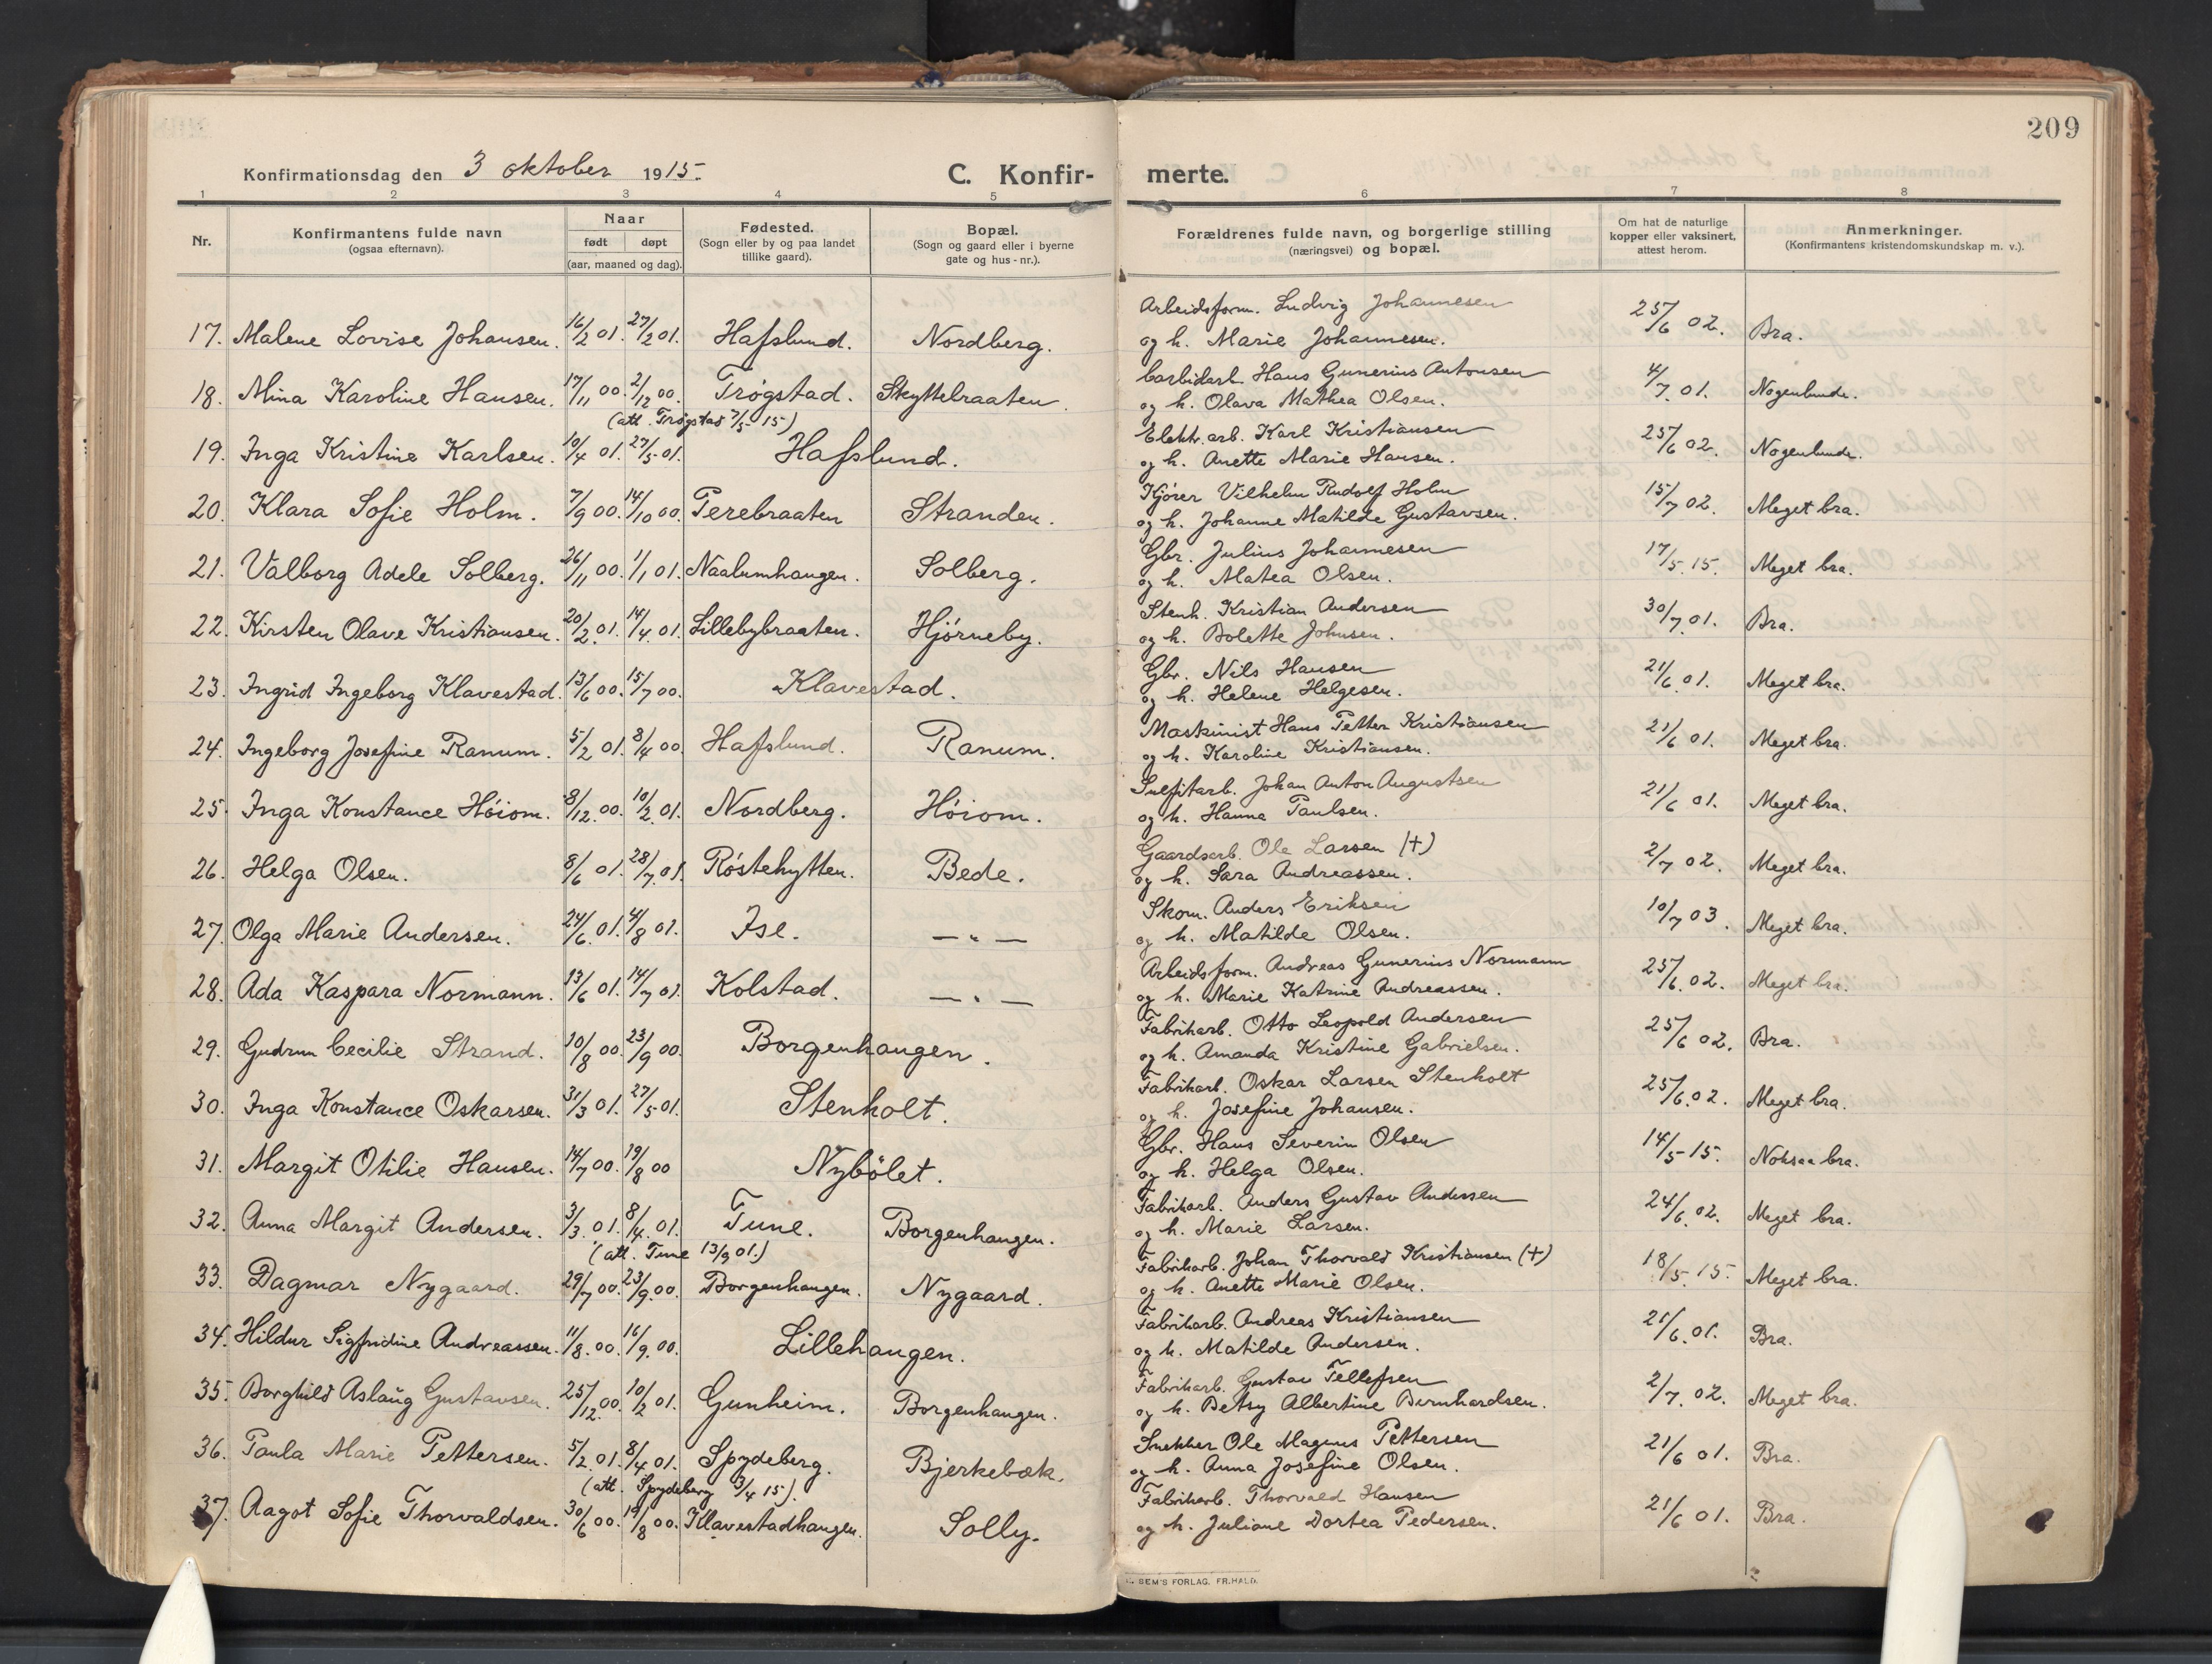 209
Konfirmationsdag den 3 oktober 1915.
C. Konfir-
merte.
1 2 3 4 5 6 7 8
Nr.
Konfirmantens fulde navn
(ogsaa efternavn).
Naar
født døpt
(aar, maaned og dag).
Fødested.
(Sogn eller by og paa landet
tillike gaard).
Bopæl.
(Sogn og gaard eller i byerne
gate og hus-nr.).
Forældrenes fulde navn, og borgerlige stilling
(næringsvei) og bopæl.
Om hat de naturlige
kopper eller vaksinert,
attest herom.
Anmerkninger.
(Konfirmantens kristendomskundskap m. v.).
Arbeidsform. Ludvig Johannesen
17. Malene Lovise Johansen. 16/2 01. 27/2 01. Hafslund. Nordberg. og h. Marie Johannesen. 25/6 02. Bra.
Carbidarb. Hans Gunerius Antonsen
18. Mina Karoline Hansen. 17/11 00. 2/12 00. Trøgstad. Skyttebraaten. og h. Olava Mathea Olsen. 4/7 01. Nogenlunde.
(att. Trøgstad 7/5 15)
Elektr. arb. Karl Kristiansen
19. Inga Kristine Karlsen. 10/4 01. 27/5 01. Hafslund. og h. Anette Marie Hansen. 25/6 02. Nogenlunde.
Kjører Vilhelm Rudolf Holm
20. Klara Sofie Holm. 7/9 00. 14/10 00. Perebraaten Stranden. og h. Johanne Matilde Gustavsen. 15/7 02. Meget bra.
Gbr. Julius Johannesen
21. Valborg Adele Solberg. 26/11 00. 1/1 01. Naalumhaugen. Solberg. og h. Matea Olsen. 17/5 15. Meget bra.
Stenh. Kristian Andersen
22. Kirsten Olave Kristiansen. 20/2 01. 14/4 01. Lillebybraaten. Hjørneby. og h. Bolette Johnsen. 30/7 01. Bra.
Gbr. Nils Hansen
23. Ingrid Ingeborg Klavestad. 13/6 00. 15/7 00. Klavestad. og h. Helene Helgesen. 21/6 01. Meget bra.
Maskinist Hans Petter Kristiansen
24. Ingeborg Josefine Ranum. 5/2 01. 8/4 00. Hafslund. Ranum. og h. Karoline Kristiansen. 21/6 01. Meget bra.
Sulfitarb. Johan Anton Augustsen
25. Inga Konstance Høiom. 8/12 00. 10/2 01. Nordberg. Høiom. og h. Hanna Paulsen. 21/6 01. Meget bra.
Gaardsarb. Ole Larsen (+)
26. Helga Olsen. 8/6 01. 28/7 01. Røstehytten. Bede. og h. Sara Andreassen. 2/7 02. Meget bra.
Skom. Anders Eriksen
27. Olga Marie Andersen. 24/6 01. 4/8 01. Ise. —"— og h. Matilde Olsen. 10/7 03. Meget bra.
Arbeidsform. Andreas Gunerius Normann
28. Ada Kaspara Normann. 13/6 01. 14/7 01. Kolstad. —"— og h. Marie Katrine Andreassen. 25/6 02. Meget bra.
Fabrikarb. Otto Leopold Andersen
29. Gudrun Cecilie Strand. 10/8 00. 23/9 00. Borgenhaugen. og h. Amanda Kristine Gabrielsen. 25/6 02. Bra.
Fabrikarb. Oskar Larsen Stenholt
30. Inga Konstance Oskarsen. 31/3 01. 27/5 01. Stenholt. og h. Josefine Johansen. 25/6 02. Meget bra.
Gbr. Hans Severin Olsen
31. Margit Otilie Hansen. 14/7 00. 19/8 00 Nybølet. og h. Helga Olsen. 14/5 15. Noksaa bra.
Fabrikarb. Anders Gustav Andersen
32. Anna Margit Andersen. 3/3 01. 8/4 01. Tune. Borgenhaugen. og h. Marie Larsen. 24/6 02. Meget bra.
(att. Tune 13/9 01.)
Fabrikarb. Johan Thorvald Kristiansen (+)
33. Dagmar Nygaard. 29/7 00. 23/9 00. Borgenhaugen. Nygaard. og h. Anette Marie Olsen. 18/5 15. Meget bra.
Fabrikarb. Andreas Kristiansen
34. Hildur Sigfridine Andreassen. 11/8 00. 16/9 00. Lillehaugen. og h. Matilde Andersen. 21/6 01. Bra.
Fabrikarb. Gustav Tellefsen
35. Borghild Aslaug Gustavsen. 25/12 00. 10/2 01. Gunheim. Borgenhaugen. og h. Betsy Albertine Bernhardsen. 2/7 02. Meget bra.
Snekker Ole Magnus Pettersen
36. Paula Marie Pettersen. 5/2 01. 8/4 01. Spydeberg. Bjerkebæk. og h. Anna Josefine Olsen. 21/6 01. Bra.
(att. Spydeberg 3/4 15).
Fabrikarb. Thorvald Hansen
37. Aagot Sofie Thorvaldsen. 30/6 00. 19/8 00. Klavestadhaugen. Solly. og h. Juliane Dortea Pedersen. 21/6 01. Bra.
SEM'S FORLAG. FR.HALD.